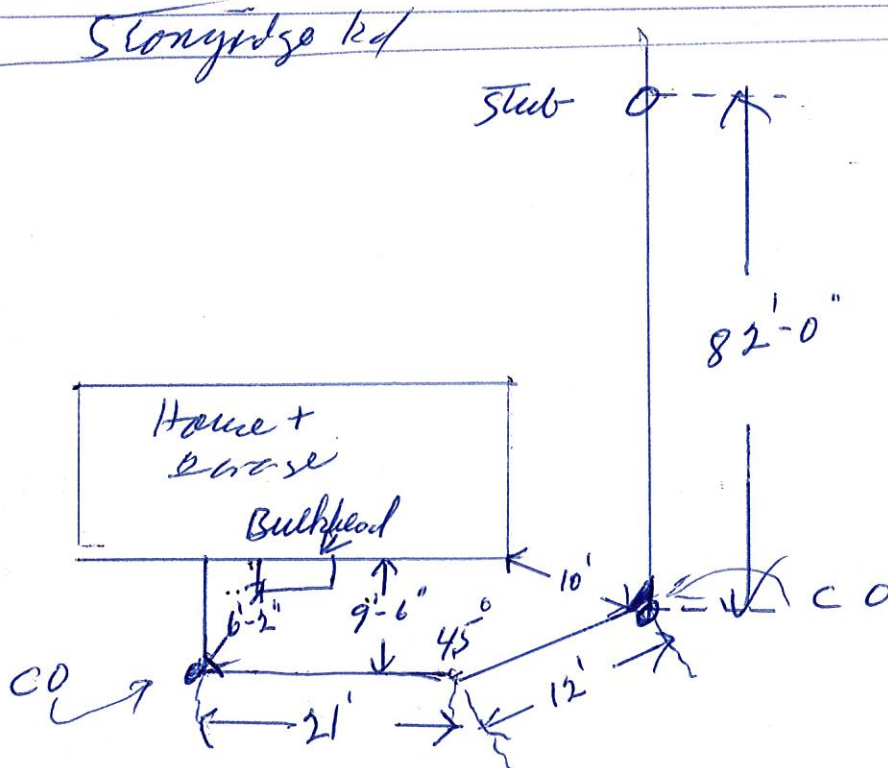 Stonyridge Rd
Stub
82'-0"
Home +
Garage
Bulkhead
10'
6'-2"
9'-6"
45°
CO
CO
12'
21'